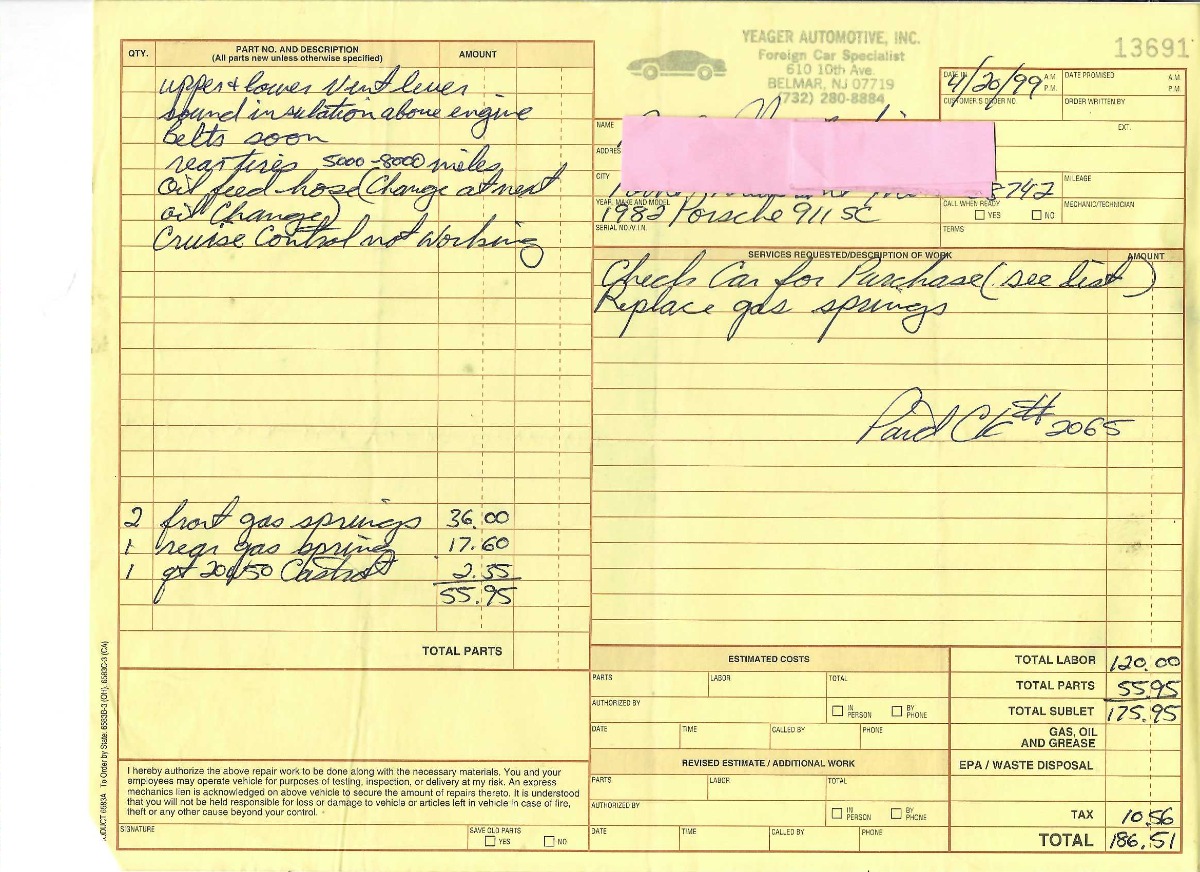 QTY.
PART NO. AND DESCRIPTION
(All parts new unless otherwise specified)
AMOUNT
upper & lower Vent lever
sound insulation above engine
belts soon
rear tires 5000-8000 miles
Oil feed hose (Change at next
oil Change)
Cruise Control not Working
2 front gas springs 36.00
1 rear gas spring 17.60
1 qt 20w50 Castrol 2.35
55.95
TOTAL PARTS
I hereby authorize the above repair work to be done along with the necessary materials. You and your
employees may operate vehicle for purposes of testing, inspection, or delivery at my risk. An express
mechanics lien is acknowledged on above vehicle to secure the amount of repairs thereto. It is understood
that you will not be held responsible for loss or damage to vehicle or articles left in vehicle in case of fire,
theft or any other cause beyond your control.
SIGNATURE
SAVE OLD PARTS
YES NO
To Order by State: 6583B-3 (OH), 6583C-3 (CA)
YEAGER AUTOMOTIVE, INC.
Foreign Car Specialist
610 10th Ave.
BELMAR, NJ 07719
(732) 280-8884
13691
DATE IN 4/20/99 A.M. P.M.
DATE PROMISED A.M. P.M.
CUSTOMER'S ORDER NO.
ORDER WRITTEN BY
NAME
EXT.
ADDRES
CITY
8742
MILEAGE
YEAR, MAKE AND MODEL
1982 Porsche 911 SC
CALL WHEN READY
YES NO
MECHANIC/TECHNICIAN
SERIAL NO./V.I.N.
TERMS
SERVICES REQUESTED/DESCRIPTION OF WORK
AMOUNT
Check Car for Purchase (see list)
Replace gas springs
Paid Ck# 2065
ESTIMATED COSTS
PARTS LABOR TOTAL
AUTHORIZED BY
IN PERSON BY PHONE
DATE TIME CALLED BY PHONE
REVISED ESTIMATE / ADDITIONAL WORK
PARTS LABOR TOTAL
AUTHORIZED BY
IN PERSON BY PHONE
DATE TIME CALLED BY PHONE
TOTAL LABOR 120.00
TOTAL PARTS 55.95
TOTAL SUBLET 175.95
GAS, OIL
AND GREASE
EPA / WASTE DISPOSAL
TAX 10.56
TOTAL 186.51